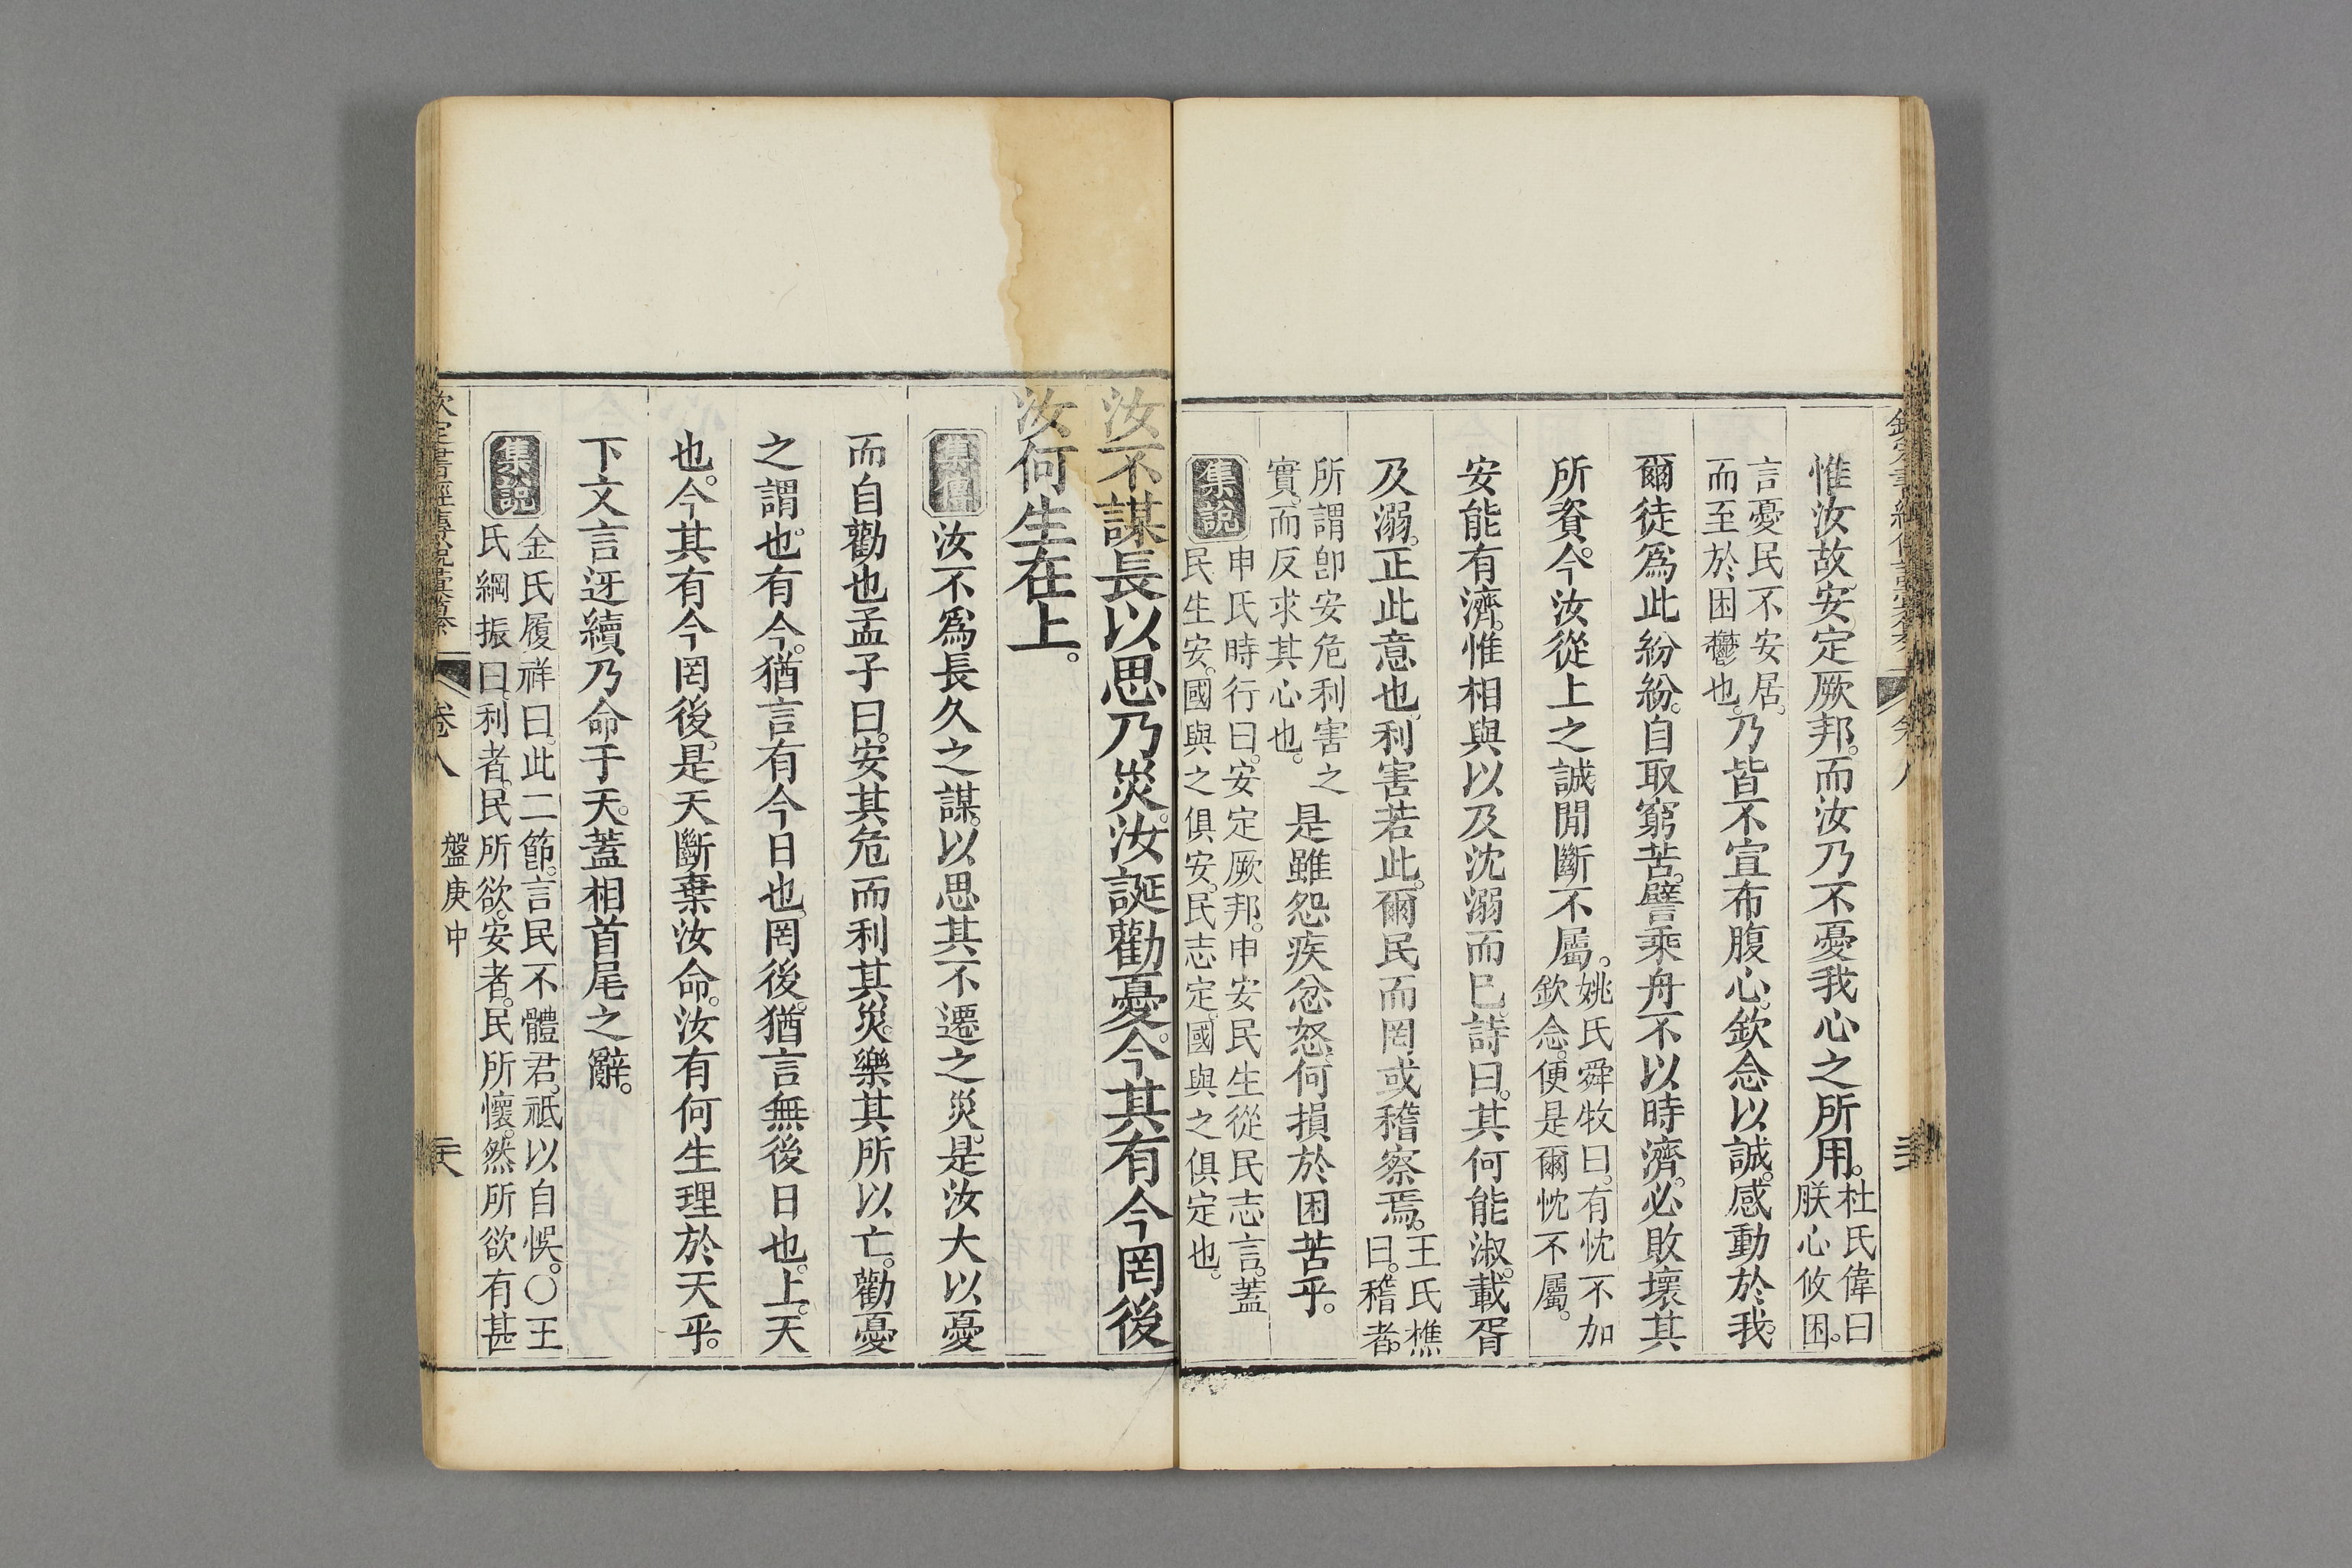 惟汝故安定厥邦。而汝乃不憂我心之所用。杜氏偉曰朕心攸困。
言憂民不安居。而至於困鬱也。乃皆不宣布腹心。欽念以誠。感動於我。
爾徒爲此紛紛。自取窮苦。譬乘舟不以時濟。必敗壞其
所資。今汝從上之誠閒斷不屬。姚氏舜牧曰。有忱不加欽念。便是爾忱不屬。
安能有濟。惟相與以及沈溺而已。詩曰。其何能淑。載胥
及溺。正此意也。利害若此。爾民而罔或稽察焉。王氏樵曰。稽者。
所謂卽安危利害之實。而反求其心也。是雖怨疾忿怒。何損於困苦乎。
集說 申氏時行曰。安定厥邦。申安民生從民志言。蓋民生安。國與之俱安。民志定。國與之俱定也。
汝不謀長以思乃災。汝誕勸憂。今其有今罔後
汝何生在上。
集傳 汝不爲長久之謀。以思其不遷之災。是汝大以憂
而自勸也。孟子曰。安其危而利其災。樂其所以亡。勸憂
之謂也。有今。猶言有今日也。罔後。猶言無後日也。上。天
也。今其有今罔後。是天斷棄汝命。汝有何生理於天乎。
下文言迓續乃命于天。蓋相首尾之辭。
集說 金氏履祥曰。此二節。言民不體君。祗以自悞。〇王氏綱振曰。利者。民所欲。安者。民所懷。然所欲有甚
欽定書經傳說彙纂 卷八 盤庚中